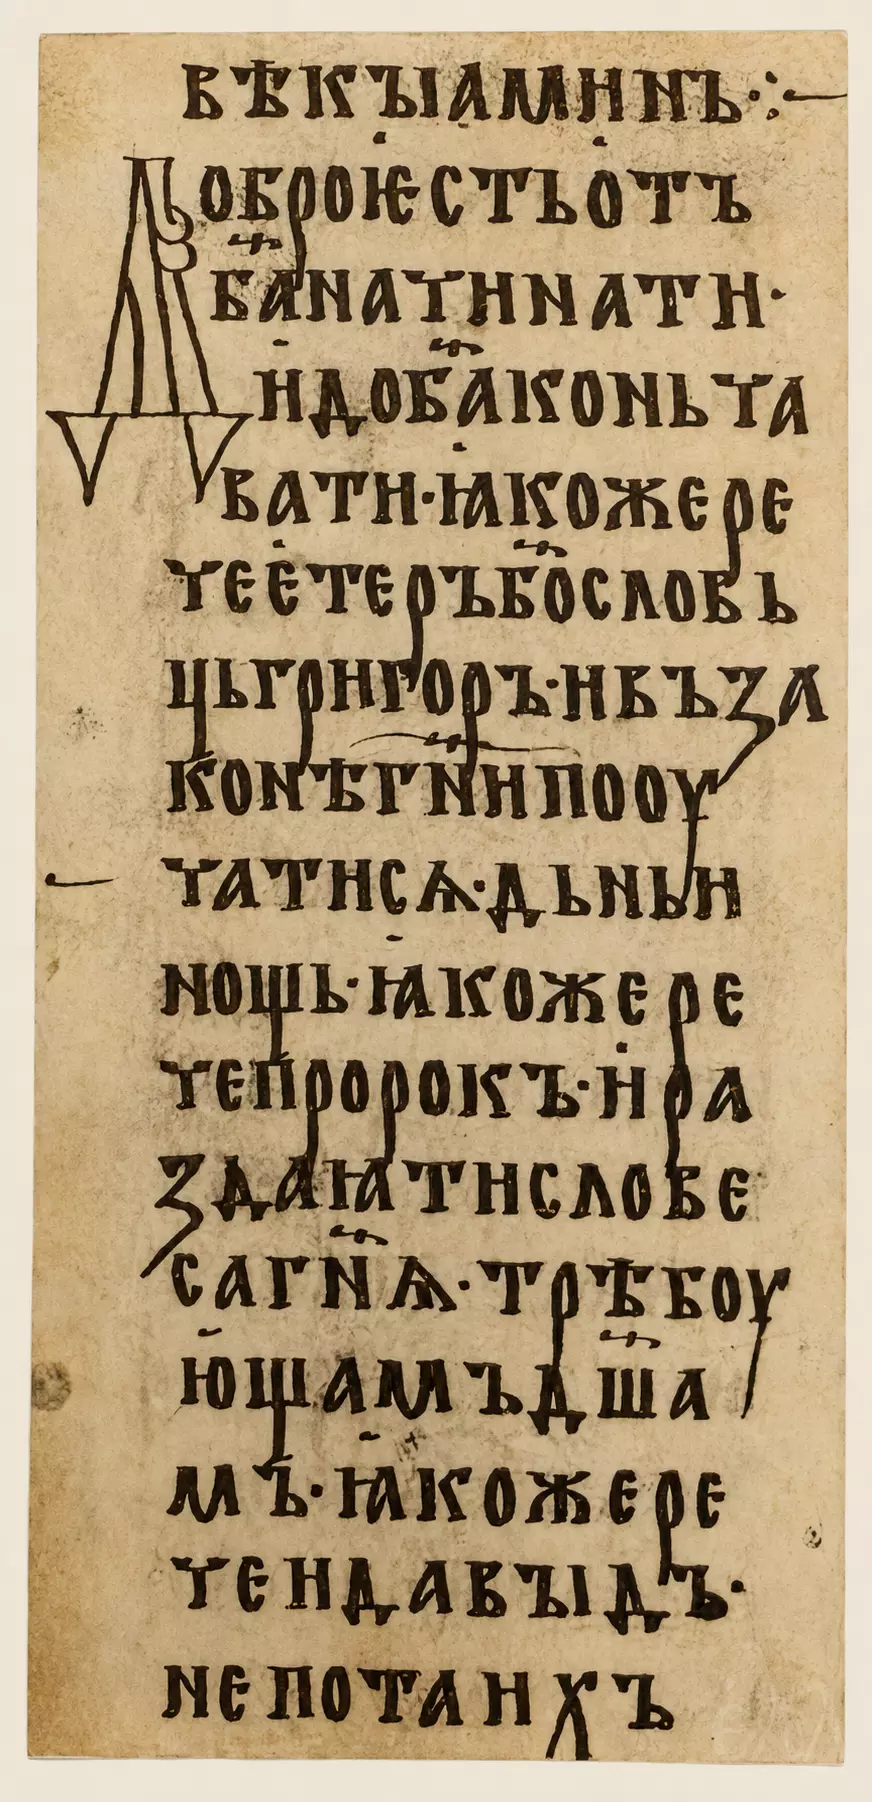 вѣкыаминъ·:·
Доброѥстьот͏ъ
ба҃начинати·
идоба҃коньча
вати·ꙗкожере
чеетеръбо҃словь
цьгригоръ·ивъза
конѣгн҃ипооу
чатисѧ·дьньи
нощь·ꙗкожере
чепророкъ·ира
здаꙗтислове
сагн҃ѧ·трѣбоу
ющамъдш҃а
мъ·ꙗкожере
чеидавыдъ·
непотаихъ